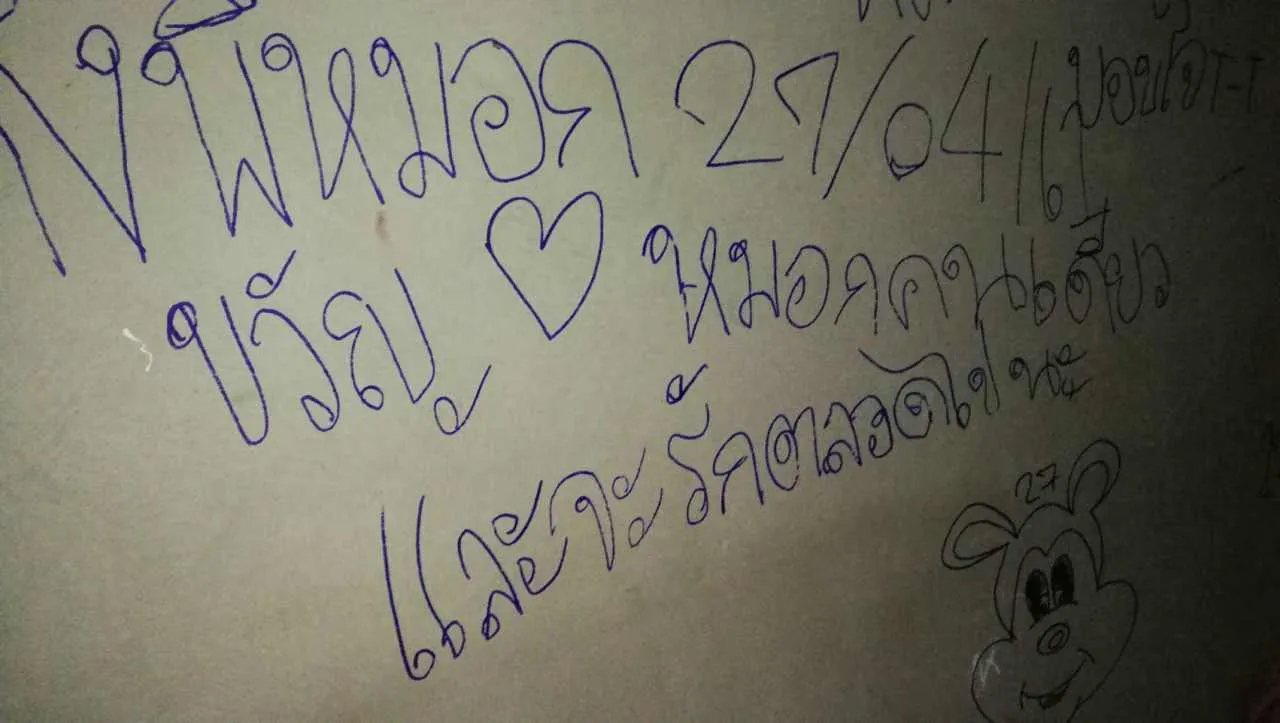 พี่หมอก 27/04/
แม่อบใจT-T
ขวัญ ♡ หมอกคนเดียว
และจะรักตลอดไปนะ
27